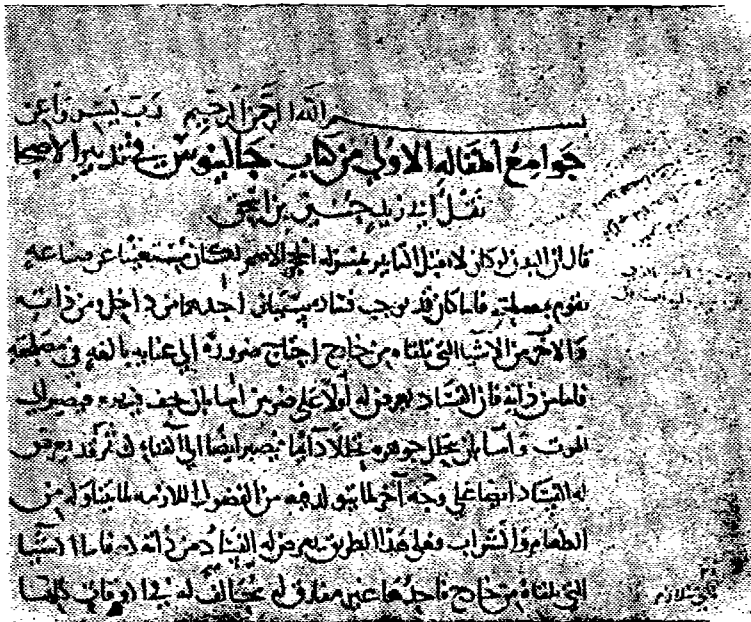 بسم الله الرحمن الرحيم رب يسر واعن
جوامع المقالة الاولى من كتاب جالينوس في تدبير الاصحا
نقل ابي زيد حنين بن اسحق
قال ان البدن لو كان لا يقبل التاثير بمنزلة الحجر الاصم لكان مستغنيا عن صناعة
تقوم بمصلحته فلما كان قد يوجب فساده سببان احدهما من داخل من ذاته
والاخر من الاشيا التي تلقاه من خارج احتاج ضرورة الي عناية بالغة في مصلحته
فاما من ذاته فان الفساد يعرض له أولا على ضربين اما بان يجف فيبرد فيصير الى
الموت واما بان يتحلل جوهره تحللا دائما فيصير ايضا الي الفناء ثم قد يعرض
له الفساد ايضا علي وجه آخر لما يتولد فيه من الفضول اللازمة لما يتناوله من
الطعام والشراب فعلى هذا الطريق يعرض له الفساد من ذاته فاما الاشيا
التي تلقاه من خارج فاحدها غير مفارق له مخالف له في الاوقات كلها